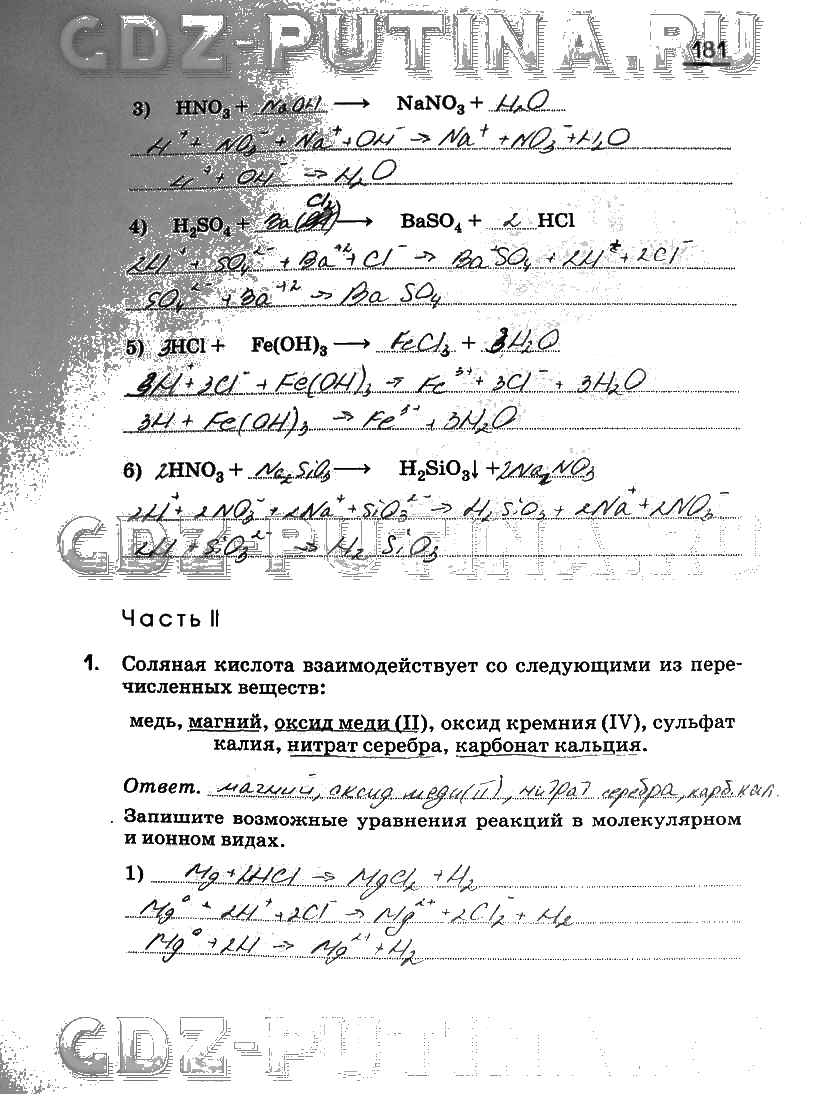 GDZ-PUTINA.RU
181
3) HNO₃ + NaOH ⟶ NaNO₃ + H₂O
H⁺ + NO₃⁻ + Na⁺ + OH⁻ → Na⁺ + NO₃⁻ + H₂O
H⁺ + OH⁻ → H₂O
4) H₂SO₄ + Ba Cl₂ ⟶ BaSO₄ + 2 HCl
2H⁺ + SO₄²⁻ + Ba⁺² + Cl⁻ → BaSO₄ + 2H⁺ + 2Cl⁻
SO₄²⁻ + Ba⁺² → BaSO₄
5) 3HCl + Fe(OH)₃ ⟶ FeCl₃ + 3H₂O
3H⁺ + 3Cl⁻ + Fe(OH)₃ → Fe³⁺ + 3Cl⁻ + 3H₂O
3H + Fe(OH)₃ → Fe³⁺ + 3H₂O
6) 2HNO₃ + Na₂SiO₃ ⟶ H₂SiO₃↓ + 2Na₂NO₃
2H⁺ + 2NO₃⁻ + 2Na⁺ + SiO₃²⁻ → H₂SiO₃ + 2Na⁺ + 2NO₃⁻
2H + SiO₃²⁻ → H₂SiO₃
GDZ-PUTINA.RU
Часть II
1. Соляная кислота взаимодействует со следующими из пере-
численных веществ:
медь, магний, оксид меди (II), оксид кремния (IV), сульфат
калия, нитрат серебра, карбонат кальция.
Ответ. магний, оксид меди(II), нитрат серебра, карб. кал.
Запишите возможные уравнения реакций в молекулярном
и ионном видах.
1) Mg + 2HCl → MgCl₂ + H₂
Mg⁰ + 2H⁺ + 2Cl⁻ → Mg²⁺ + 2Cl₂⁻ + H₂
Mg⁰ + 2H → Mg²⁺ + H₂
GDZ-PUTINA.RU